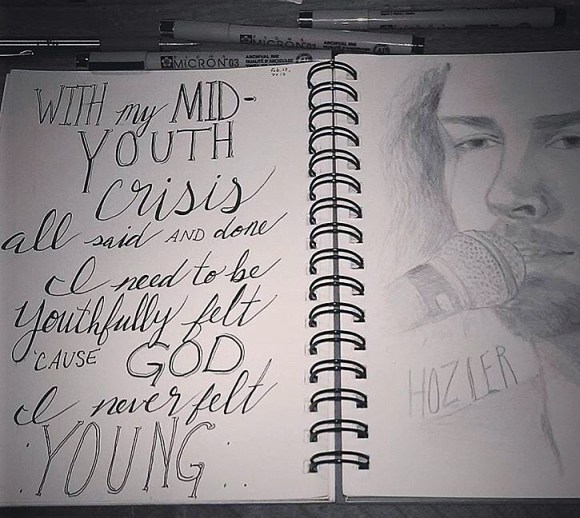 MICRON 03
WITH my MID-
YOUTH
crisis
all said AND done
I need to be
Youthfully felt
'CAUSE GOD
I never felt
YOUNG
HOZIER